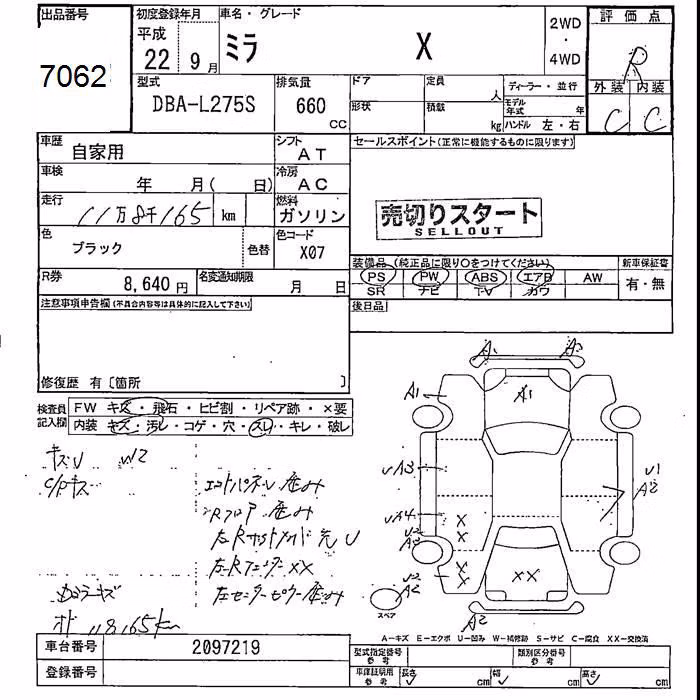 出品番号 初度登録年月 車名・グレード 2WD 評価点
7062 平成 22 9月 ミラ X ・ 4WD R
型式 DBA-L275S 排気量 660 CC ドア 定員 人 ディーラー・並行 外装 内装
形状 積載 kg モデル年式 年 ハンドル 左・右 C C
車歴 自家用 シフト AT セールスポイント(正常に機能するものに限ります)
車検 年 月( 日) 冷房 AC
走行 11万8千165 km 燃料 ガソリン 売切りスタート
SELLOUT
色 ブラック 色替 色コード X07
装備品 (純正品に限り○をつけてください) 新車保証書
R券 8,640円 名変通知期限 月 日 PS PW ABS エアB AW 有・無
SR ナビ TV カワ
注意事項申告欄(不具合内容等は具体的に記入して下さい) 後日品
修復歴 有〔箇所 〕
検査員記入欄 FW キズ・飛石・ヒビ割・リペア跡・×要
内装 キズ・汚レ・コゲ・穴・スレ・キレ・破レ
A1
A1
UA3
U1
A2
UA4
X
X
U2
X
X
XX
U2
A2
スペア
A2
キズU W2
C/Pキズ エンドパネルU 歪み
Rフロア 歪み
左Rフェンダー XX
左センターピラー歪み
118,165km
A-キズ E-エクボ U-凹み W-補修跡 S-サビ C-腐食 XX-交換済
車台番号 2097219 型式指定番号 参考 類別区分番号 参考
登録番号 車庫証明用 参考 長さ cm 幅 cm 高さ cm